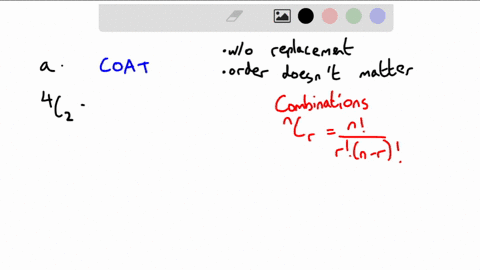 a. COAT
⁴C₂ -
• w/o replacement
• order doesn't matter
Combinations
ⁿCᵣ = n!
r!(n-r)!